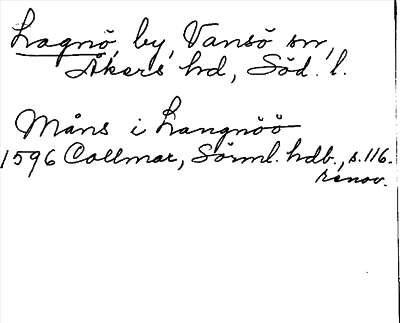 Lagnö, by, Vansö sn,
Åkers hd, Söd. l.
Måns i Langnöö
1596 Collmar, Sörml. hdb., s. 116.
renov.